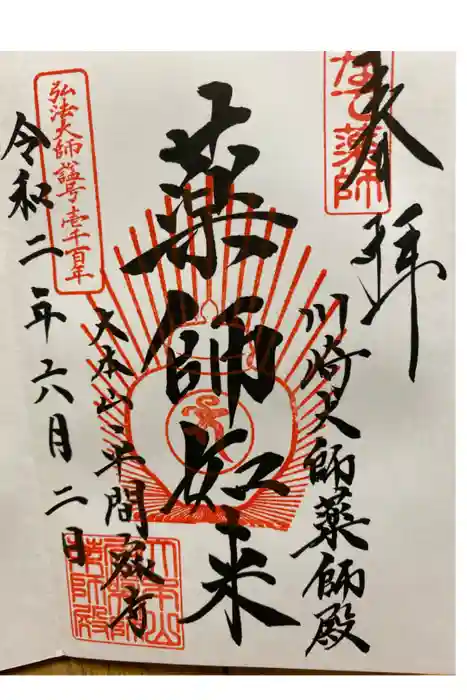 奉拝
なで薬師
川崎大師薬師殿
薬師如来
大本山平間寺
弘法大師諡号壱千百年
令和二年六月二日